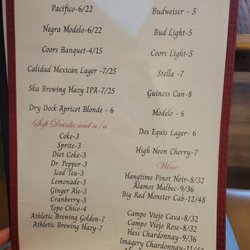 Pacifico-6/22
Negra Modelo-6/22
Coors Banquet-4/15
Calidad Mexican Lager -7/25
Ska Brewing Hazy IPA-7/25
Dry Dock Apricot Blonde - 6
Soft Drinks and n/a
Coke-3
Sprite-3
Diet Coke-3
Dr. Pepper-3
Iced Tea-3
Lemonade-3
Ginger Ale-3
Cranberry-3
Topo Chico-4
Athletic Brewing Golden-7
Athletic Brewing Hazy-7
Budweiser - 5
Bud Light-5
Coors Light-5
Stella -7
Guiness Can-8
Modelo - 6
Dos Equis Lager -6
High Noon Cherry-7
Wine
Hangtime Pinot Noir-8/32
Alamos Malbec-9/36
Big Red Monster Cab-12/48
Campo Viejo Cava-8/32
Campo Viejo Rose-8/32
Hess Chardonnay-9/36
Imagery Chardonnay-11/44